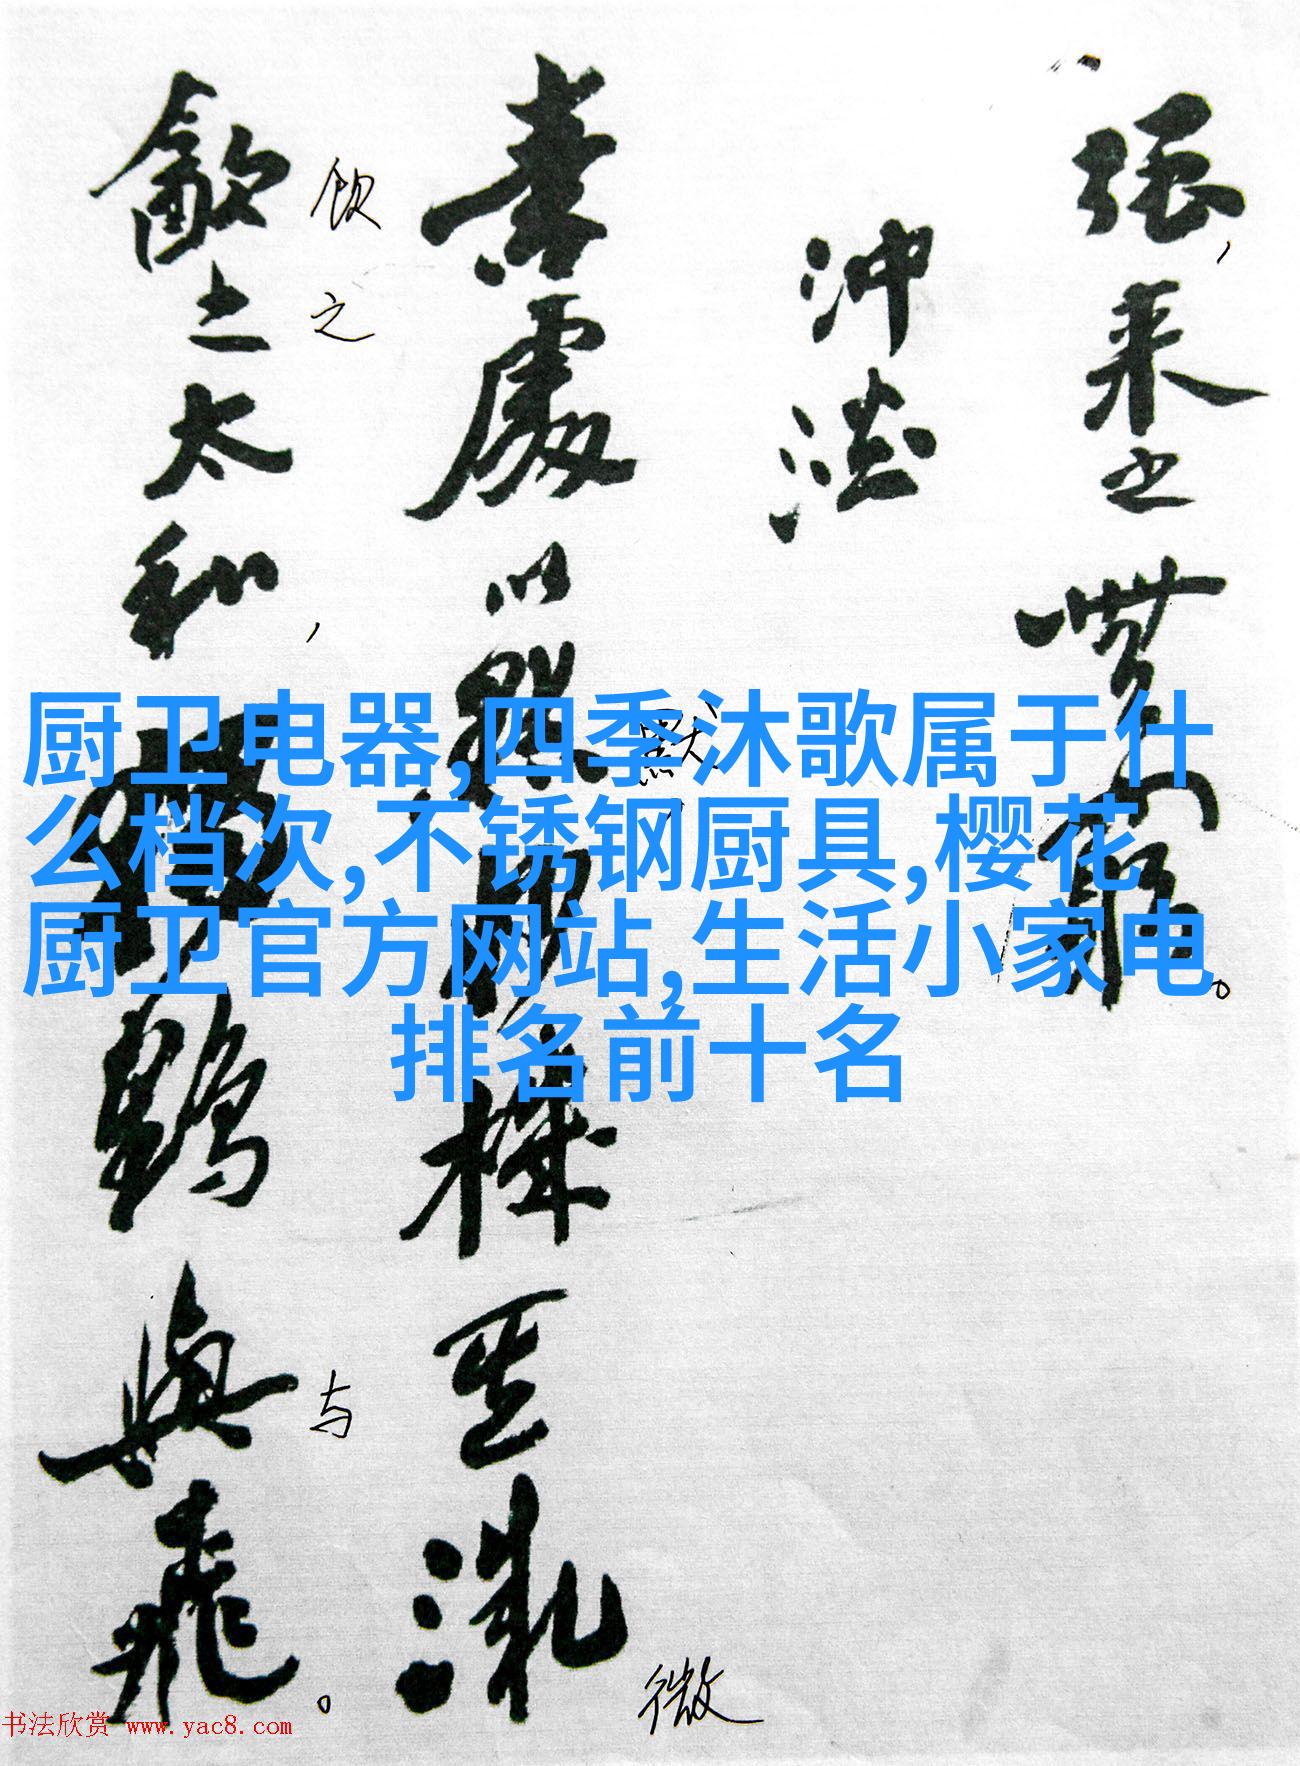 强，来之無窮。
冲淡
素處以默，妙機其微
默
微
飲之太和，獨鶴與飛。
饮
之
与
厨卫电器,四季沐歌属于什
么档次,不锈钢厨具,樱花
厨卫官方网站,生活小家电
排名前十名
书法欣赏 www.yac8.com